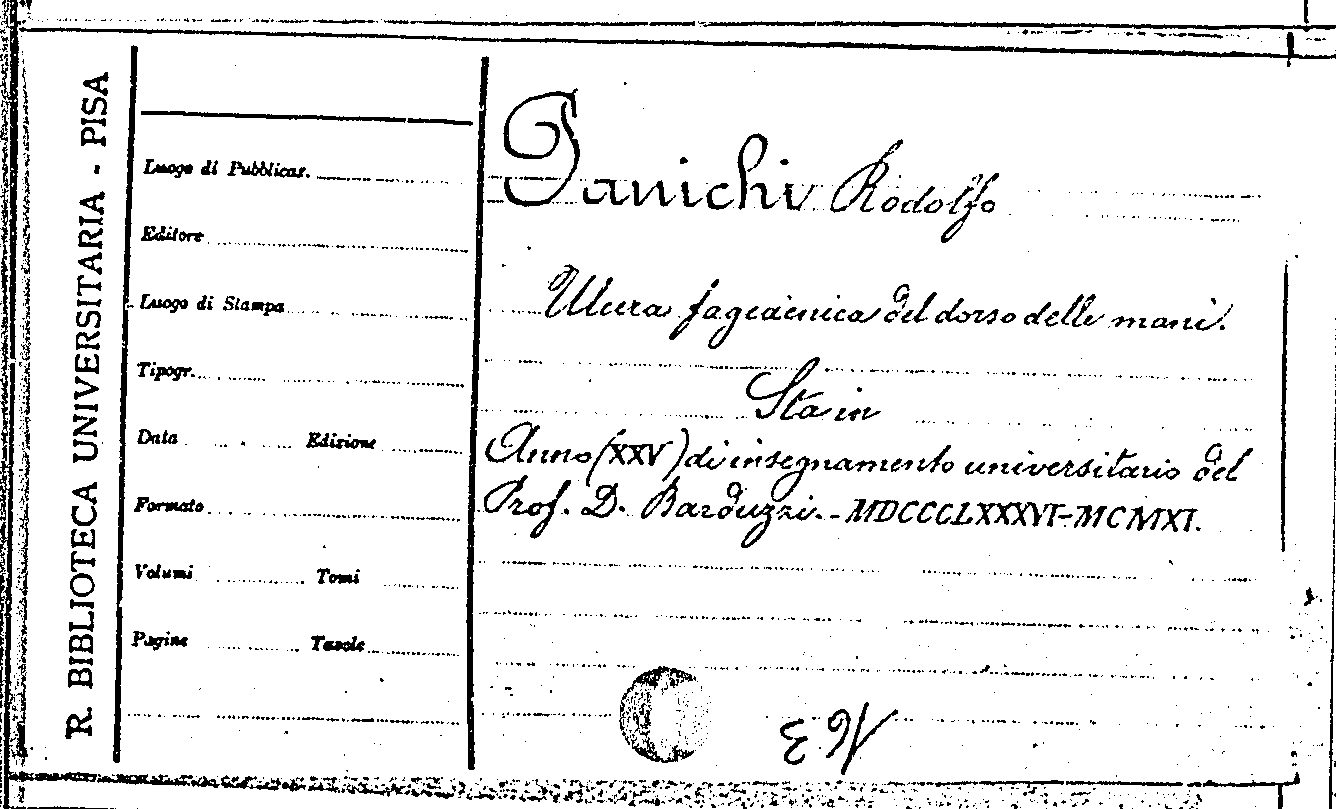 R. BIBLIOTECA UNIVERSITARIA - PISA
Luogo di Pubblicaz.
Editore
Luogo di Stampa
Tipogr.
Data Edizione
Formato
Volumi Tomi
Pagine Tavole
Panichi Rodolfo
Ulcera fagedenica del dorso delle mani.
Sta in
Anno (XXV) di insegnamento universitario del
Prof. D. Barduzzi. - MDCCCLXXXVI-MCMXI.